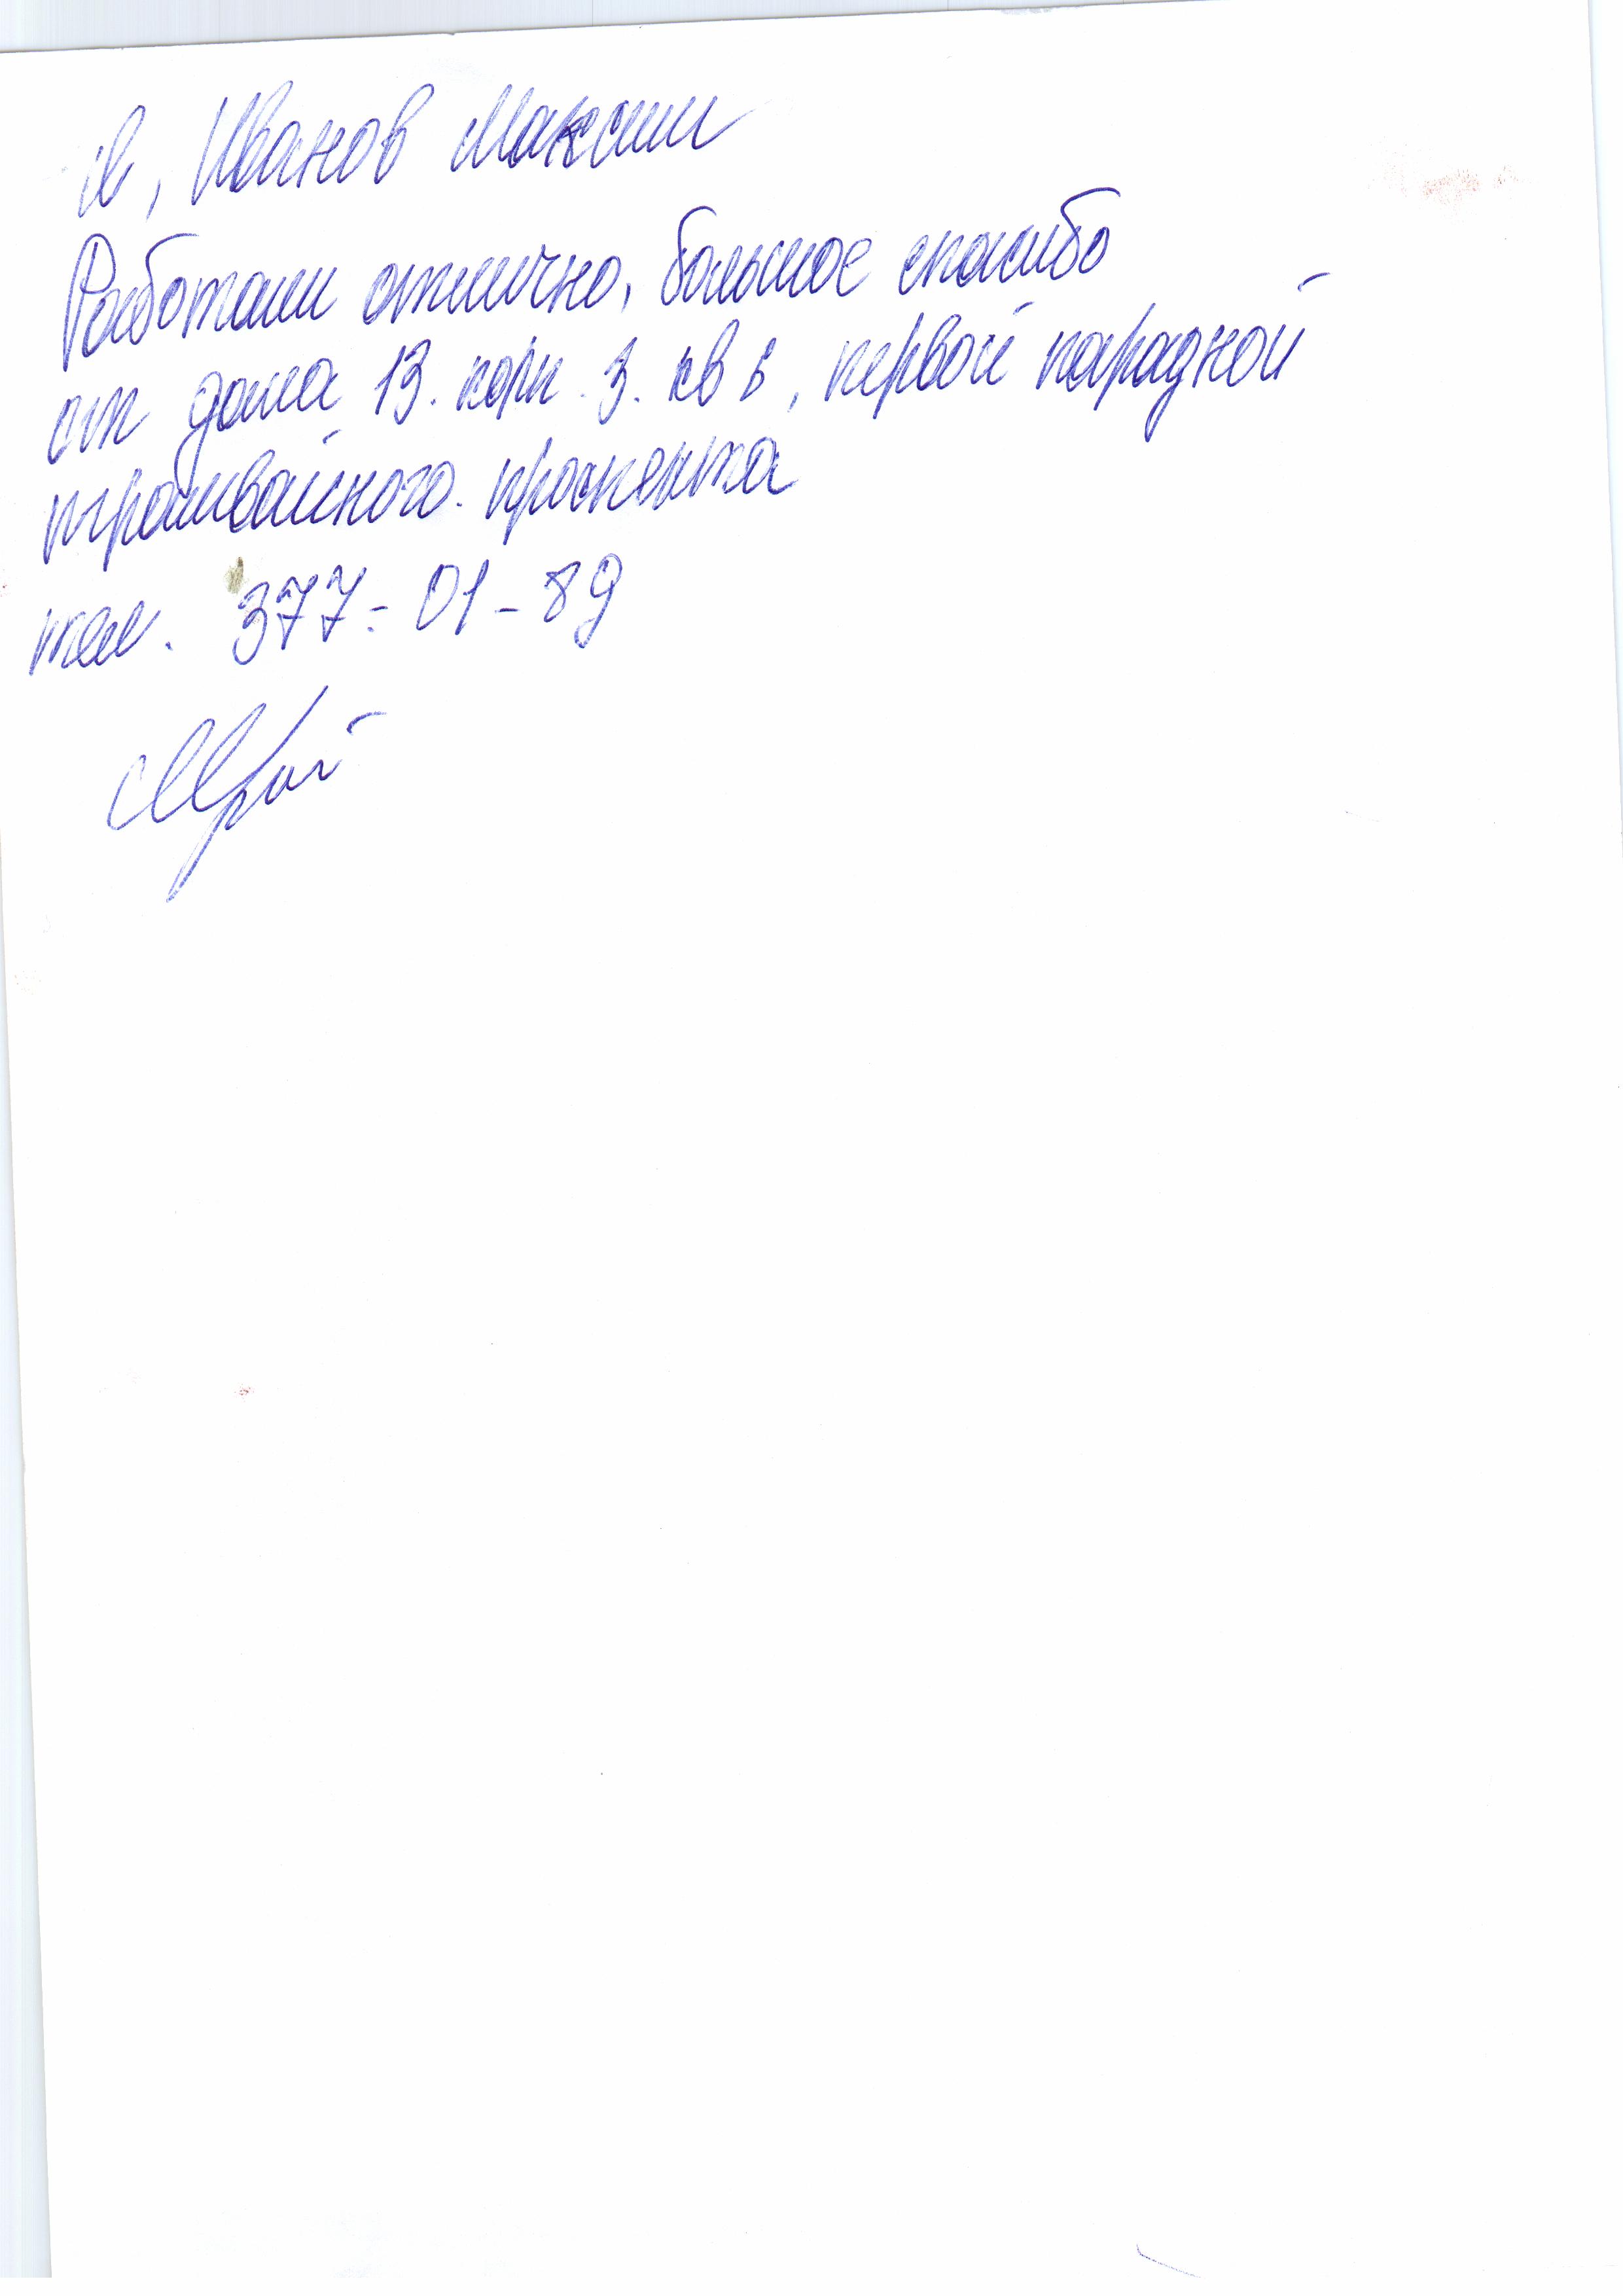 Я, Иванов Максим
Работали отлично, большое спасибо
от дома 13. корп. 3. кв 6, первой парадной
трамвайного. проспекта
тел. 377-01-89